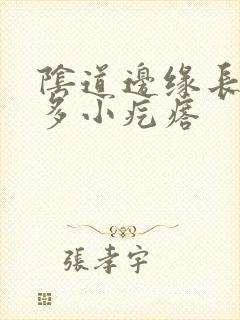 陰道邊缘長
多小疙瘩
張孝宇